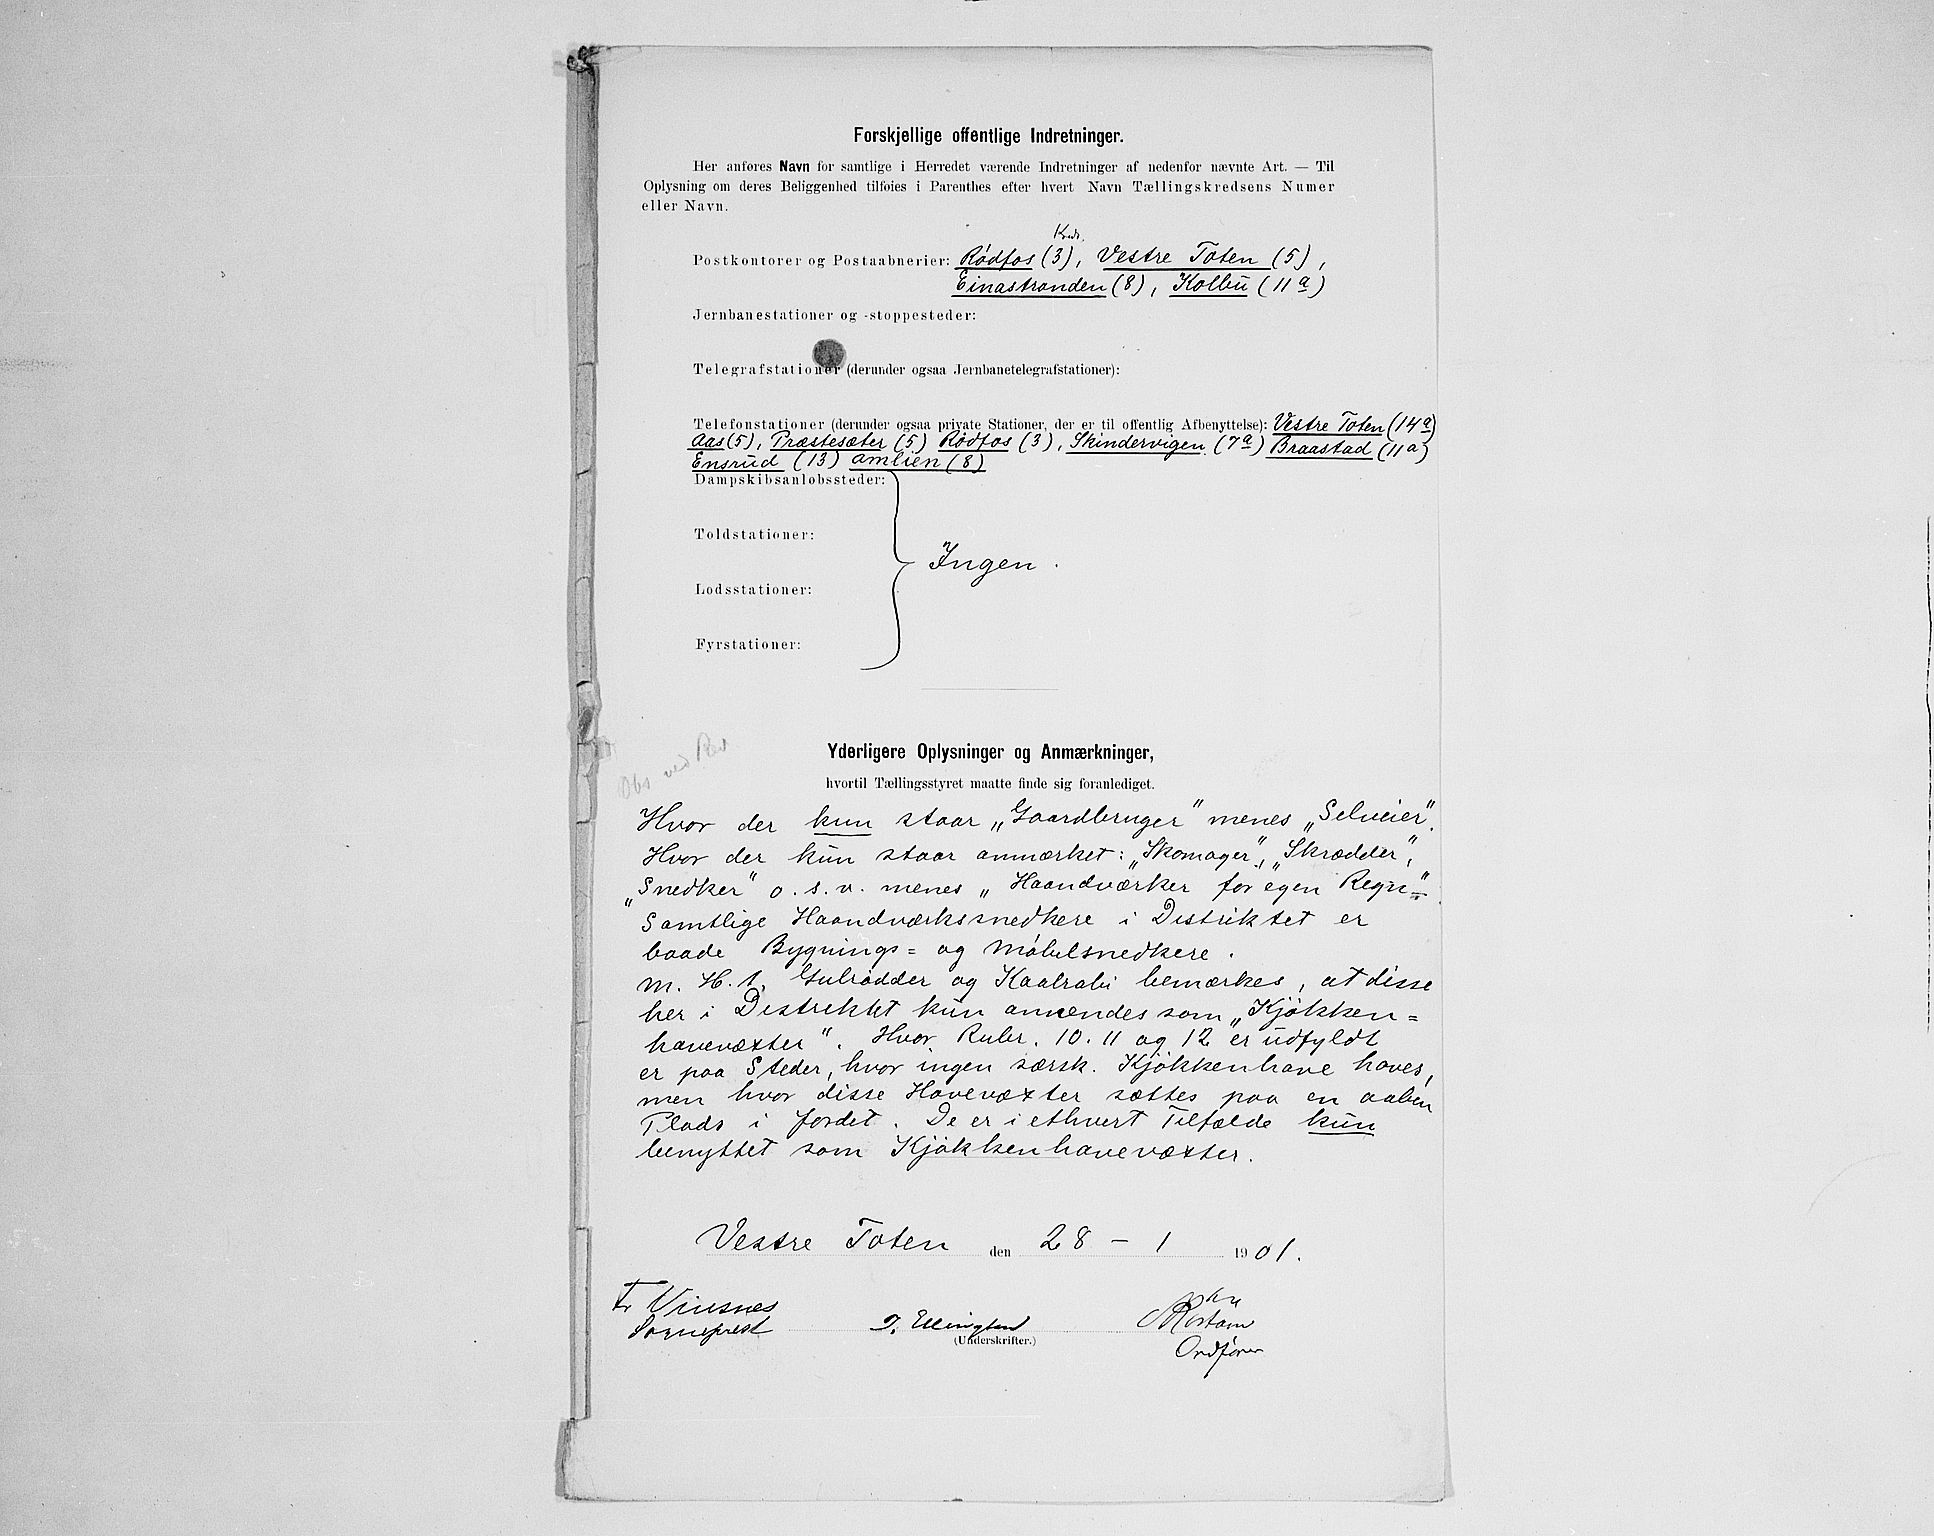 Forskjellige offentlige Indretninger.
Her anføres Navn for samtlige i Herredet værende Indretninger af nedenfor nævnte Art. — Til
Oplysning om deres Beliggenhed tilføies i Parenthes efter hvert Navn Tællingskredsens Numer
eller Navn.
Kreds.
Postkontorer og Postaabnerier: Rødfos (3), Vestre Toten (5),
Einastranden (8), Kolbu (11a)
Jernbanestationer og -stoppesteder:
Telegrafstationer (derunder ogsaa Jernbanetelegrafstationer):
Telefonstationer (derunder ogsaa private Stationer, der er til offentlig Afbenyttelse): Vestre Toten (14a)
Aas (5), Præstesæter (5) Rødfos (3), Skindervigen (7a) Braastad (11a)
Ensrud (13) Amlien (8)
Dampskibsanløbssteder:
Toldstationer:
Ingen.
Lodsstationer:
Fyrstationer:
Obs ved Rev
Yderligere Oplysninger og Anmærkninger,
hvortil Tællingsstyret maatte finde sig foranlediget.
Hvor der kun staar „Gaardbruger" menes „Selveier".
Hvor der kun staar anmærket: „Skomager", „Skrædder",
„Snedker" o. s. v. menes „Haandværker for egen Regn"
Samtlige Haandværkssnedkere i Distriktet er
baade Bygnings= og Møbelsnedkere.
M. H. t. Gulrødder og Kaalrabi bemærkes, at disse
her i Distriktet kun anvendes som „Kjøkken=
havevæxter". Hvor Rubr. 10. 11 og 12 er udfyldt
er paa Steder, hvor ingen særsk. Kjøkkenhave haves,
men hvor disse Havevæxter sættes paa en aaben
Plads i Jordet. De er i ethvert Tilfælde kun
benyttet som Kjøkkenhavevæxter.
Vestre Toten den 28 – 1 1901.
Fr Vinsnes
Sogneprest
(Underskrifter.)
Ordfører